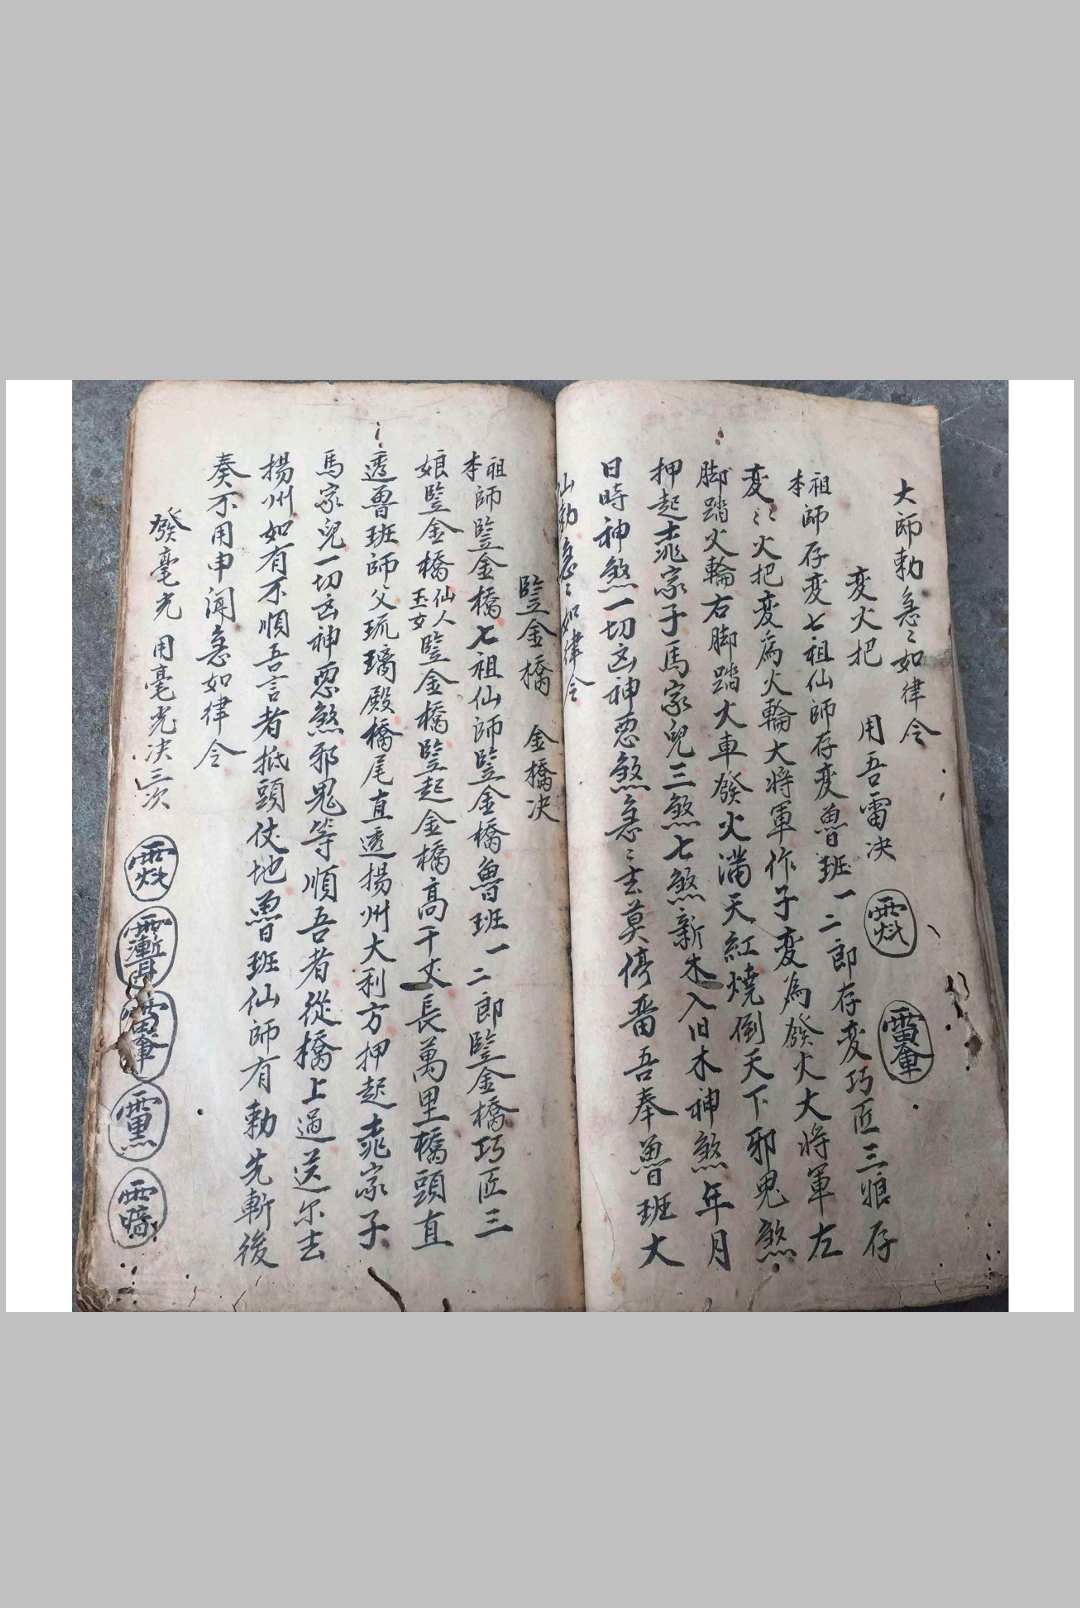 大師勅急〻如律令
変火把 用吾雷决
祖本師存変七祖仙師存変魯班一二郎存変巧匠三娘存
変〻火把変為火輪大将軍作子変為發火大将軍左
脚踏火輪右脚踏火車發火滿天紅燒倒天下邪鬼煞
押起家子馬家兒三煞七煞新木入旧木神煞年月
日時神煞一切凶神惡煞急〻去莫停畨吾奉魯班大
仙勅急〻如律令
竪金橋 金橋决
祖本師竪金橋七祖仙師竪金橋魯班一二郎竪金橋巧匠三
娘竪金橋仙人玉女竪金橋竪起金橋高千丈長萬里橋頭直
透魯班師父琉璃殿橋尾直透揚州大利方押起家子
馬家兒一切凶神惡煞邪鬼等順吾者從橋上過送尔去
揚州如有不順吾言者抵頭伏地魯班仙師有勅先斬後
奏不用申聞急如律令
發毫光 用毫光决三次